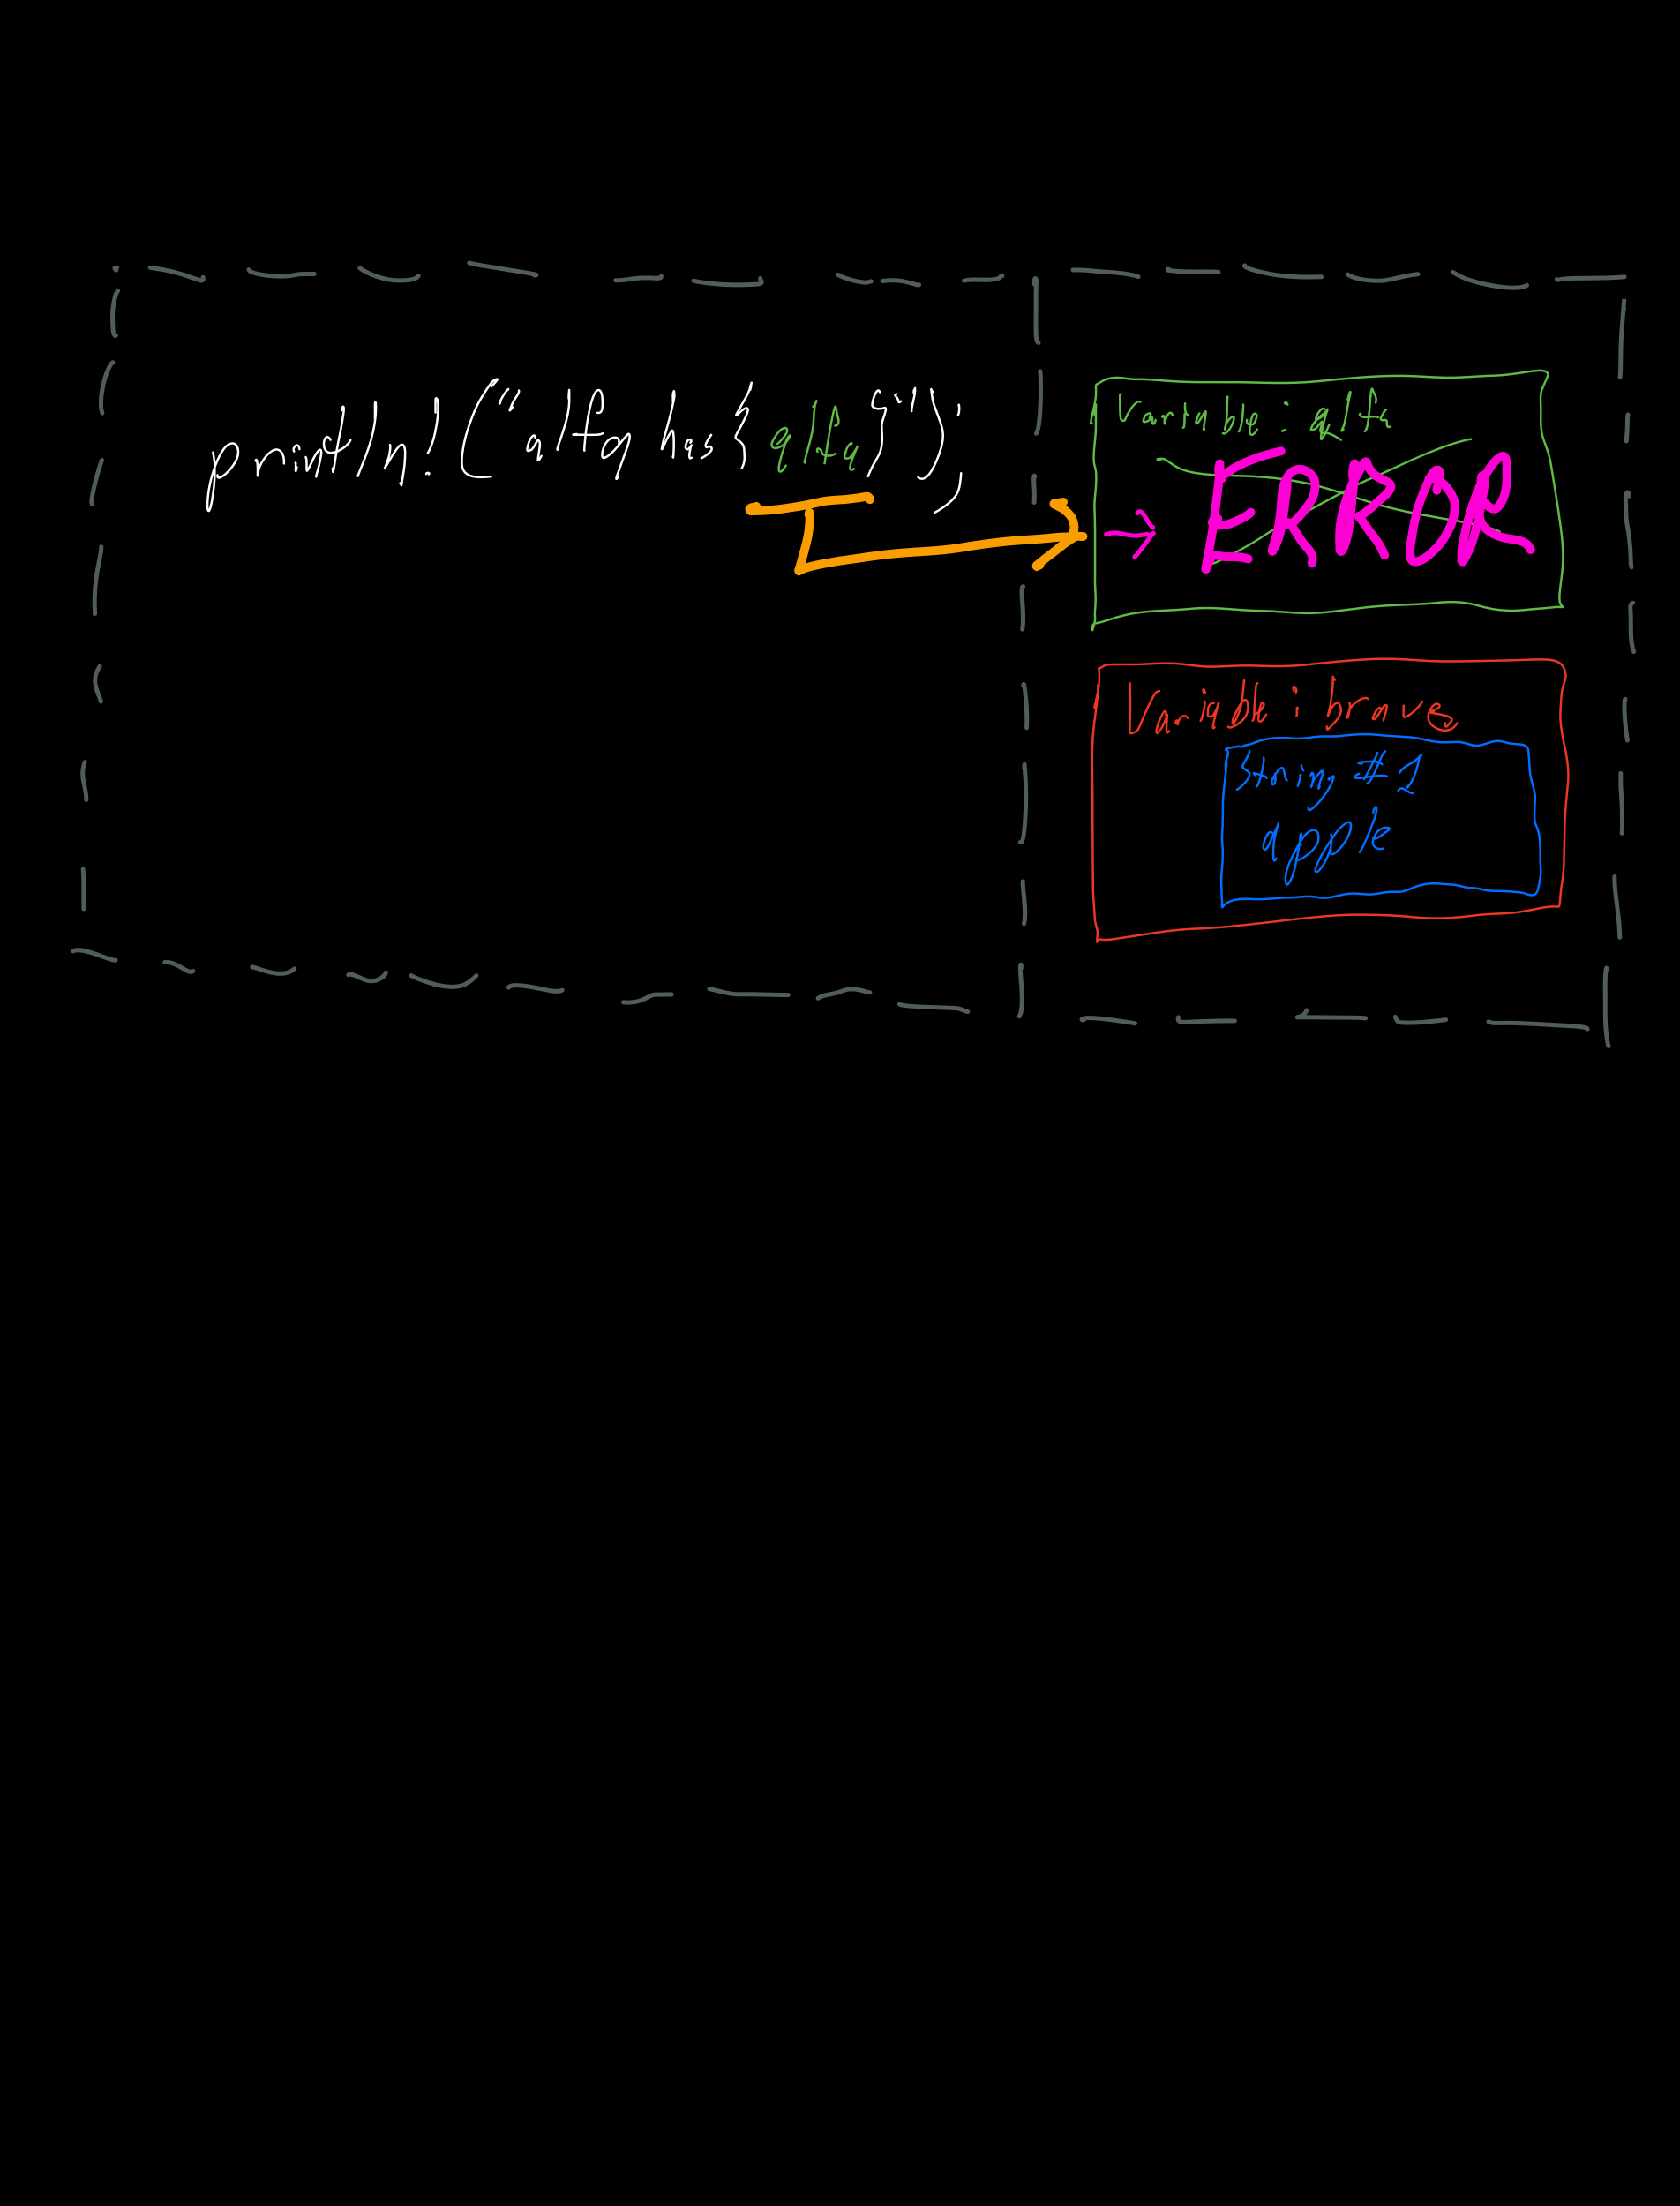 println!("alfa has {alfa}");
Variable: alfa
→ ERROR
Variable: brave
String #1
apple